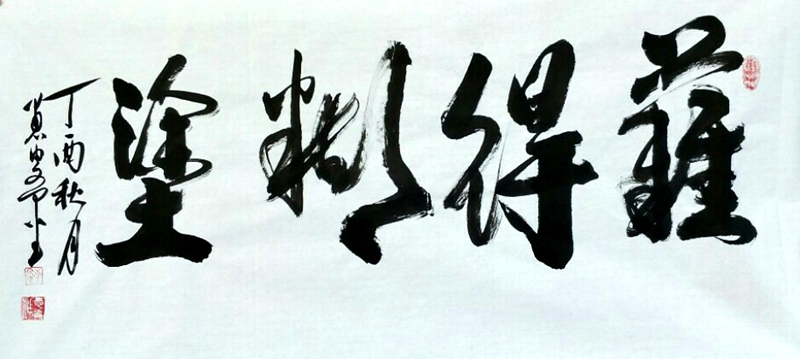 難得糊塗
丁酉秋月